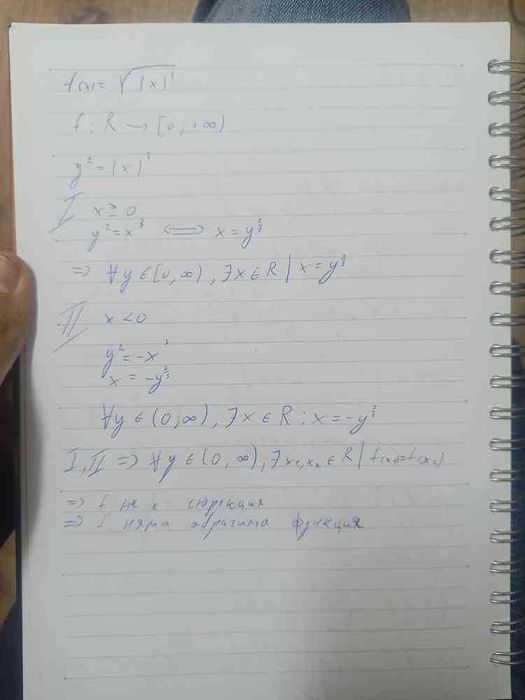 f(x) = √|x|³
f : R → [0, +∞)
y² = |x|³
I x ≥ 0
y² = x³ ⟺ x = y^(2/3)
⇒ ∀y ∈ [0, ∞), ∃x ∈ R | x = y^(2/3)
II x < 0
y² = -x³
x = -y^(2/3)
∀y ∈ (0, ∞), ∃x ∈ R : x = -y^(2/3)
I, II ⇒ ∀y ∈ (0, ∞), ∃x₁, x₂ ∈ R | f(x₁) = f(x₂)
⇒ f не е сюрекция
⇒ f няма обратима функция